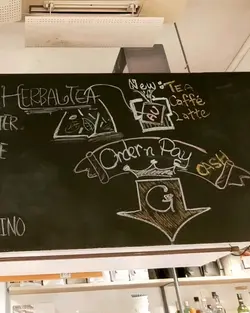 HERBAL TEA
New: TEA
Caffé
Latte
TER
E
Order n Pay
CASH
G
INO